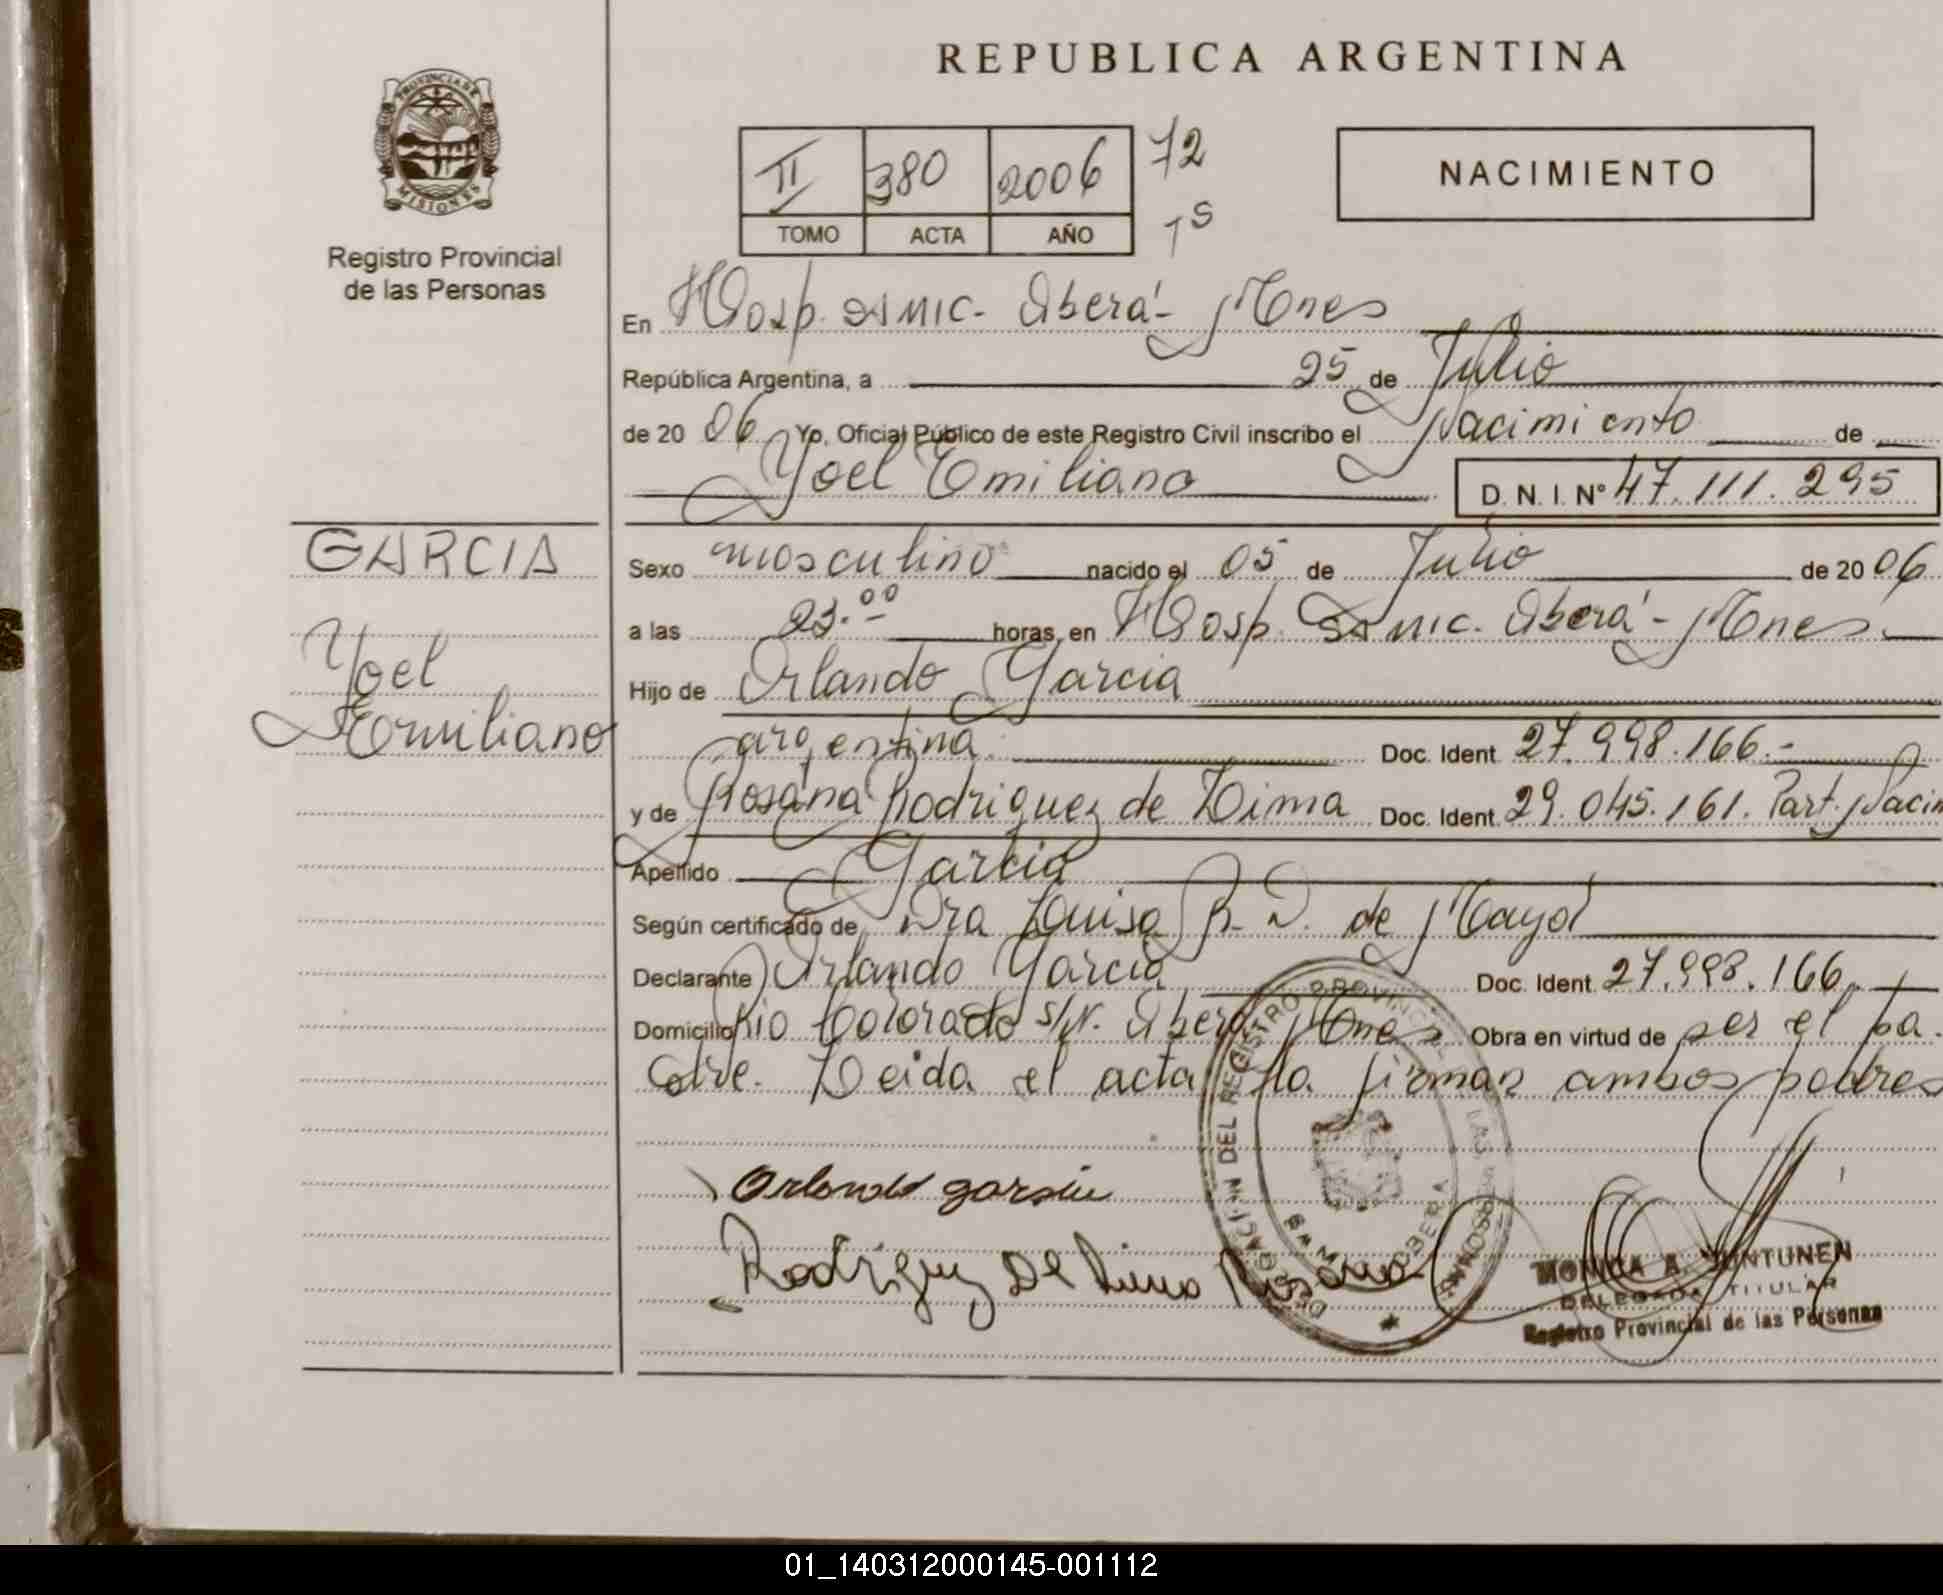 REPUBLICA ARGENTINA
PROVINCIA DE
MISIONES
Registro Provincial
de las Personas
II 380 2006 72
TOMO ACTA AÑO
NACIMIENTO
En Hosp. SAMIC. Oberá- Mnes
República Argentina, a 25 de Julio
de 20 06 Yo, Oficial Público de este Registro Civil inscribo el Nacimiento de
Yoel Emiliano D. N. I. Nº 47.111.295
GARCIA
Yoel
Emiliano
Sexo masculino nacido el 05 de Julio de 20 06
a las 23.00 horas, en Hosp. SAMIC. Oberá- Mnes.
Hijo de Orlando Garcia
argentina. Doc. Ident. 27.998.166.-
y de Rosana Rodriguez de Lima Doc. Ident. 29.045.161. Part. Nacim
Apellido Garcia
Según certificado de Dra Luisa R. D. de Mayol
Declarante Orlando Garcia Doc. Ident. 27.998.166.
Domicilio Rio Colorado s/N. Oberá Mnes Obra en virtud de ser el pa.
dre. Leida el acta la firman ambos padres
Orlando garcia
Rodriguez De Lima Rosana
DELEGACION DEL REGISTRO PROVINCIAL DE LAS PERSONAS
OBERA
MONICA A. JUNTUNEN
DELEGADA TITULAR
Registro Provincial de las Personas
01_140312000145-001112